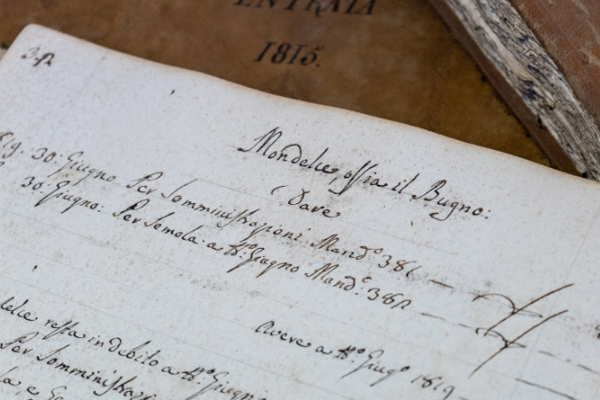 ENTRATA
1815.
Mondelce ossia il Bugno:
Dave
1819. 30: Giugno Per Somministrazioni Mand.º 381
30: Giugno: Per Semola: a tt.º Giugno Mand.º
avere a tt.º Giug.º 1819
resta in debito a tt.º Giugno
Per Somministrazi